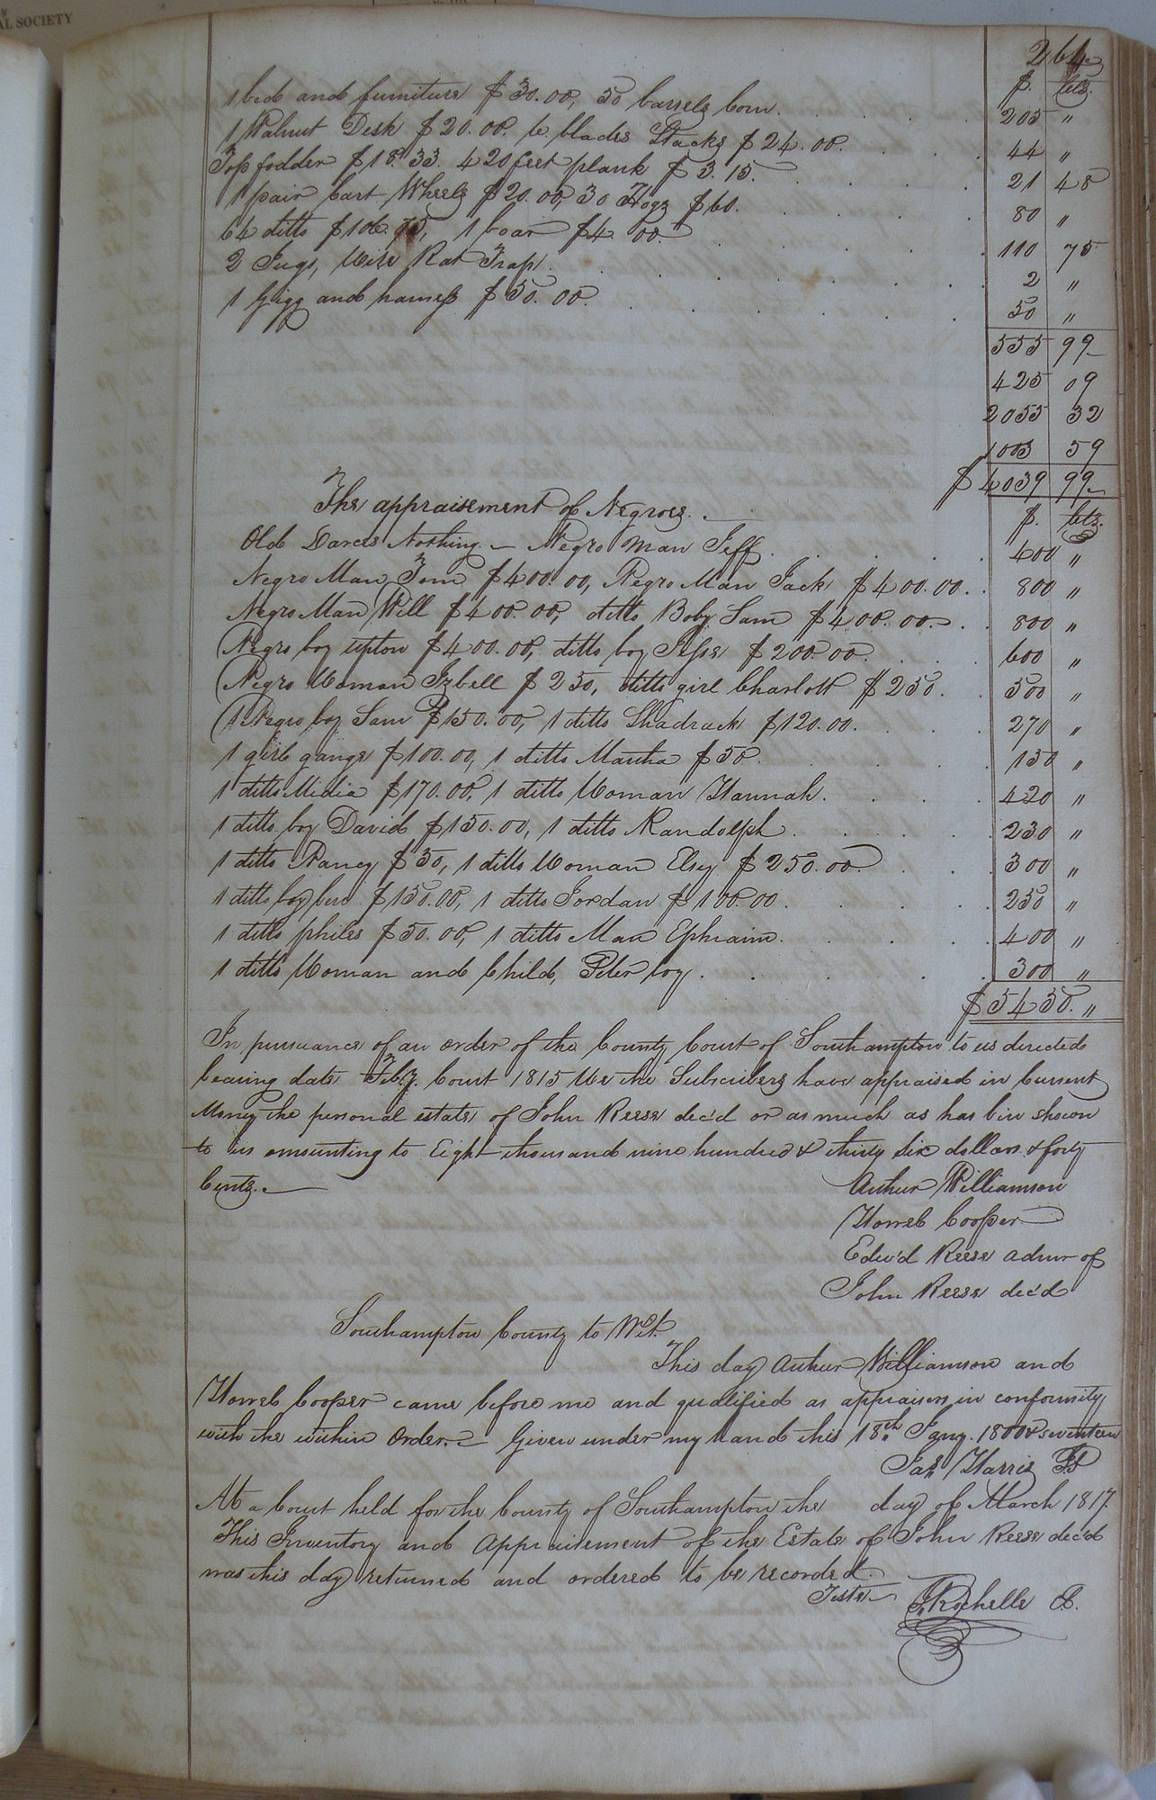 AL SOCIETY
264
$. Cts.
1 bed and furniture $30.00, 50 barrels Corn. 205 "
1 Walnut Desk $20.00. 6 blades Stacks $24.00. 44 "
Top fodder $18.33. 420 feet plank $3.15. 21 48
1 pair Cart Wheels $20.00, 30 Hogs $60. 80 "
64 ditto $106.75, 1 boar $4.00. 110 75
2 Jugs, Wire Rat Trap. 2 "
1 Gigg and harness $50.00. 50 "
555 99
425 09
2055 32
1003 59
$4039 99
The appraisement of Negroes. $. Cts.
Old Darcs Nothing. — Negro Man Jeff. 400 "
Negro Man, Tom $400.00, Negro Man Jack $400.00. 800 "
Negro Man Will $400.00, ditto Boby Sam $400.00. 800 "
Negro boy upton $400.00, ditto boy Jesse $200.00. 600 "
Negro Woman Izbell $250, ditto girl Charlott $250. 500 "
1 Negro boy Sam $150.00, 1 ditto Shadrack $120.00. 270 "
1 girl gange $100.00, 1 ditto Martha $50. 150 "
1 ditto Midia $170.00, 1 ditto Woman Hannah. 420 "
1 ditto boy David $150.00, 1 ditto Randolph. 230 "
1 ditto Nancy $50, 1 ditto Woman Elsy $250.00 300 "
1 ditto boy ben $150.00, 1 ditto Jordan $100.00. 250 "
1 ditto philes $50.00, 1 ditto Man Ephraim. 400 "
1 ditto Woman and Child, Peter boy. 300 "
$5450. "
In pursuance of an order of the County Court of Southampton to us directed
bearing date Feby. Court 1815 We the Subscribers have appraised in Current
Money the personal estate of John Reese dec'd or as much as has bin shown
to us amounting to Eight thousand nine hundred & thirty six dollars & forty
Cents.
Arthur Williamson
Cooper
Edw'd Reese admr of
John Reese dec'd
Southampton County to Wit.
This day Arthur Williamson and
Cooper came before me and qualified as appraisers in conformity
with the within Order. Given under my hand this 18th Jany. 1800 & seventeen
Jas. Harris JP
At a Court held for the County of Southampton the day of March 1817.
This Inventory and Appraisement of the Estate of John Reese dec'd
was this day returned and ordered to be recorded.
Teste
Rochelle